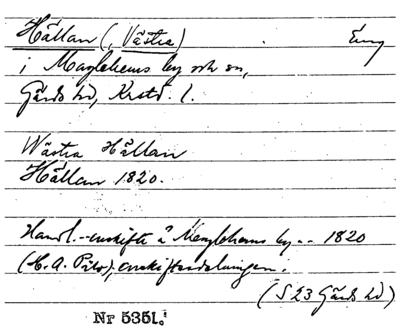 Hållan (, Västra) Äng
i Maglehems by och sn,
Gärds hd, Krstd. l.
Wästra Hållan
Hållan 1820.
Handl. - enskifte å Maglehems by .. 1820
(H. A. ), enskiftesdelningen.
(S 23 Gärds hd)
Nr 5351.